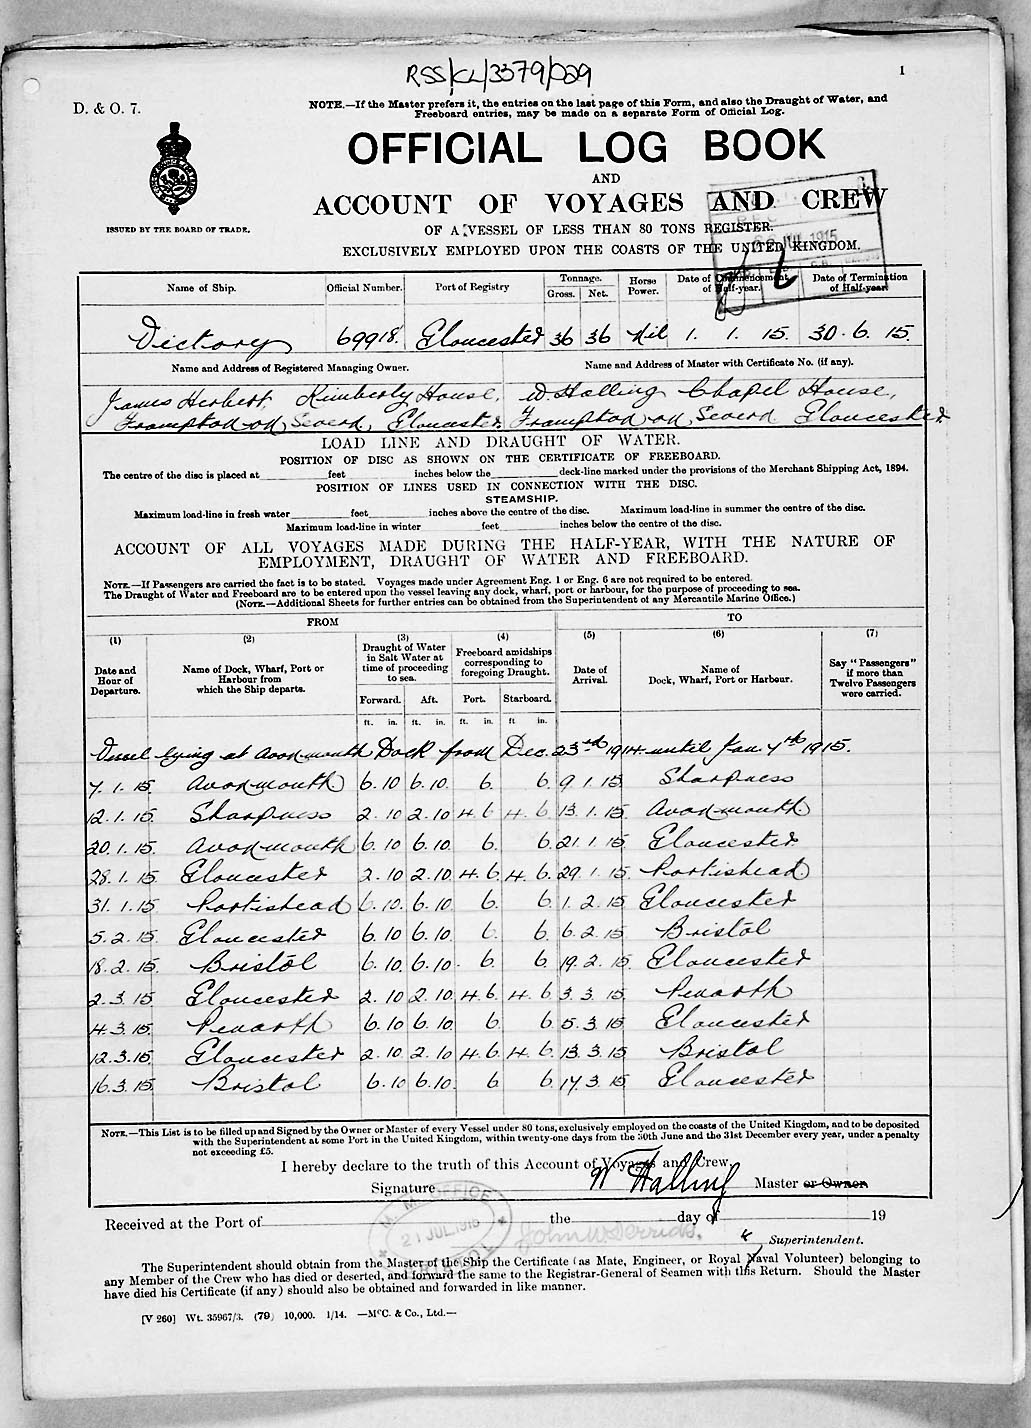 RSS/CL/3379/029
1
D. & O. 7.
NOTE.—If the Master prefers it, the entries on the last page of this Form, and also the Draught of Water, and
Freeboard entries, may be made on a separate Form of Official Log.
OFFICIAL LOG BOOK
AND
ACCOUNT OF VOYAGES AND CREW
ISSUED BY THE BOARD OF TRADE.
OF A VESSEL OF LESS THAN 80 TONS REGISTER.
EXCLUSIVELY EMPLOYED UPON THE COASTS OF THE UNITED KINGDOM.
JUL 1915
Name of Ship. Official Number. Port of Registry Tonnage. Gross. Net. Horse Power. Date of Commencement of Half-year. Date of Termination of Half-year.
Victory 69918. Gloucester 36 36 Nil 1. 1. 15. 30. 6. 15.
Name and Address of Registered Managing Owner. Name and Address of Master with Certificate No. (if any).
James Herbert, Kimberly House, W. Halling Chapel House,
Frampton-on-Severn, Gloucester. Frampton-on-Severn Gloucester.
LOAD LINE AND DRAUGHT OF WATER.
POSITION OF DISC AS SHOWN ON THE CERTIFICATE OF FREEBOARD.
The centre of the disc is placed at feet inches below the deck-line marked under the provisions of the Merchant Shipping Act, 1894.
POSITION OF LINES USED IN CONNECTION WITH THE DISC.
STEAMSHIP.
Maximum load-line in fresh water feet inches above the centre of the disc. Maximum load-line in summer the centre of the disc.
Maximum load-line in winter feet inches below the centre of the disc.
ACCOUNT OF ALL VOYAGES MADE DURING THE HALF-YEAR, WITH THE NATURE OF
EMPLOYMENT, DRAUGHT OF WATER AND FREEBOARD.
NOTE.—If Passengers are carried the fact is to be stated. Voyages made under Agreement Eng. 1 or Eng. 6 are not required to be entered.
The Draught of Water and Freeboard are to be entered upon the vessel leaving any dock, wharf, port or harbour, for the purpose of proceeding to sea.
(NOTE.—Additional Sheets for further entries can be obtained from the Superintendent of any Mercantile Marine Office.)
FROM TO
(1) (2) (3) (4) (5) (6) (7)
Date and Hour of Departure. Name of Dock, Wharf, Port or Harbour from which the Ship departs. Draught of Water in Salt Water at time of proceeding to sea. Freeboard amidships corresponding to foregoing Draught. Date of Arrival. Name of Dock, Wharf, Port or Harbour. Say "Passengers" if more than Twelve Passengers were carried.
Forward. Aft. Port. Starboard.
ft. in. ft. in. ft. in. ft in.
Vessel lying at Avonmouth Dock from Dec. 23rd 1914 until Jan. 7th 1915.
7. 1. 15. Avonmouth 6. 10 6. 10. 6. 6. 9. 1. 15. Sharpness
12. 1. 15. Sharpness 2. 10 2. 10 4. 6 4. 6 13. 1. 15. Avonmouth
20. 1. 15. Avonmouth 6. 10 6. 10. 6. 6. 21. 1. 15. Gloucester
28. 1. 15. Gloucester 2. 10 2. 10 4. 6 4. 6. 29. 1. 15. Portishead
31. 1. 15 Portishead 6. 10. 6. 10. 6. 6. 1. 2. 15 Gloucester
5. 2. 15. Gloucester 6. 10 6. 10. 6. 6. 6. 2. 15. Bristol
18. 2. 15. Bristol 6. 10. 6. 10. 6. 6. 19. 2. 15. Gloucester
2. 3. 15 Gloucester 2. 10 2. 10 4. 6 4. 6 3. 3. 15. Penarth
4. 3. 15. Penarth 6. 10 6. 10. 6 6. 5. 3. 15 Gloucester
12. 3. 15 Gloucester 2. 10. 2. 10 4. 6 4. 6. 13. 3. 15 Bristol
16. 3. 15. Bristol 6. 10 6. 10. 6 6. 17. 3. 15 Gloucester
NOTE.—This List is to be filled up and Signed by the Owner or Master of every Vessel under 80 tons, exclusively employed on the coasts of the United Kingdom, and to be deposited
with the Superintendent at some Port in the United Kingdom, within twenty-one days from the 30th June and the 31st December every year, under a penalty
not exceeding £5.
I hereby declare to the truth of this Account of Voyages and Crew.
Signature W Halling Master or Owner
M. M. OFFICE
21 JUL. 1915
Received at the Port of the day of 19
Superintendent.
The Superintendent should obtain from the Master of the Ship the Certificate (as Mate, Engineer, or Royal Naval Volunteer) belonging to
any Member of the Crew who has died or deserted, and forward the same to the Registrar-General of Seamen with this Return. Should the Master
have died his Certificate (if any) should also be obtained and forwarded in like manner.
[V 260] Wt. 35967/3. (79) 10,000. 1/14. —McC. & Co., Ltd.—